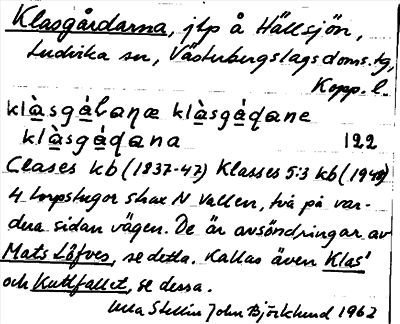 Klasgårdarna, jtp å Hällsjön,
Ludvika sn, Västerbergslags doms. tg,
Kopp. l.
klàsgáƚaɳæ klàsgáɖaɳe
klàsgáɖana 122
Clases kb (1837-47) Klasses 5:3 kb (1948)
4 torpstugor strax N Vallen, två på var-
dera sidan vägen. De är avsöndringar av
Mats Löfves, se detta. Kallas även Klas'
och Kuttfallet, se dessa.
Ulla Stellin John Björklund 1962